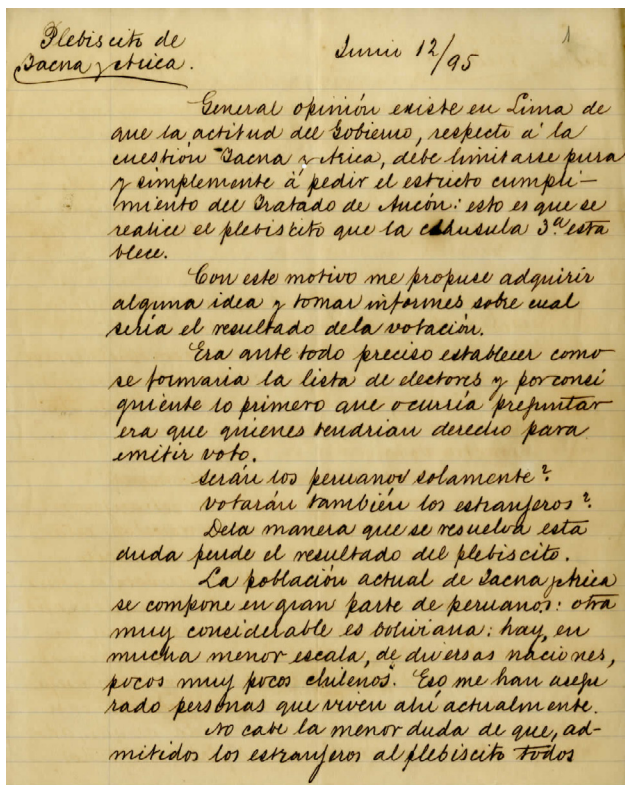 Plebiscito de
Tacna y Arica.
Junio 12/95
1
General opinión existe en Lima de
que la actitud del Gobierno, respecto á la
cuestión Tacna y Arica, debe limitarse pura
y simplemente á pedir el estricto cumpli-
miento del Tratado de Ancón: esto es que se
realice el plebiscito que la cláusula 3.ª esta
blece.
Con este motivo me propuse adquirir
alguna idea y tomar informes sobre cual
sería el resultado dela votación.
Era ante todo preciso establecer como
se formaria la lista de electores y por consi
guiente lo primero que ocurría preguntar
era que quienes tendrian derecho para
emitir voto.
Serán los peruanos solamente?
Votarán también los estranjeros?
Dela manera que se resuelva esta
duda pende el resultado del plebiscito.
La población actual de Tacna y Arica
se compone en gran parte de peruanos: otra
muy considerable es boliviana: hay, en
mucha menor escala, de diversas naciones,
pocos muy pocos chilenos. Eso me han asegu
rado personas que viven ahí actualmente.
No cabe la menor duda de que, ad-
mitidos los estranjeros al plebiscito todos